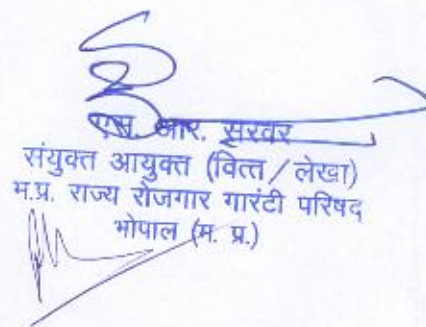 एस. आर. सरवर
संयुक्त आयुक्त (वित्त / लेखा)
म.प्र. राज्य रोजगार गारंटी परिषद
भोपाल (म. प्र.)